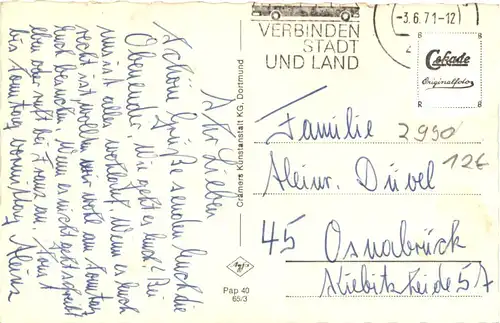 Ihr Lieben
Schöne Grüße senden Euch die
Obenender. Wie geht es Euch? Bei
uns ist alles wohlauf. Wenn es Euch
recht ist, wollen wir wohl am Sonntag
Euch besuchen. Wenn es nicht geht schreibt
eben oder ruft bei Franz an.
bis Sonntag vormittag Heinz
Cramers Kunstanstalt KG, Dortmund
Agfa
Pap 40
65/3
VERBINDEN
STADT
UND LAND
-3.6.71-12
Cekade
Originalfoto
Familie
Heinr. Düvel
45 Osnabrück
57
2990
12€